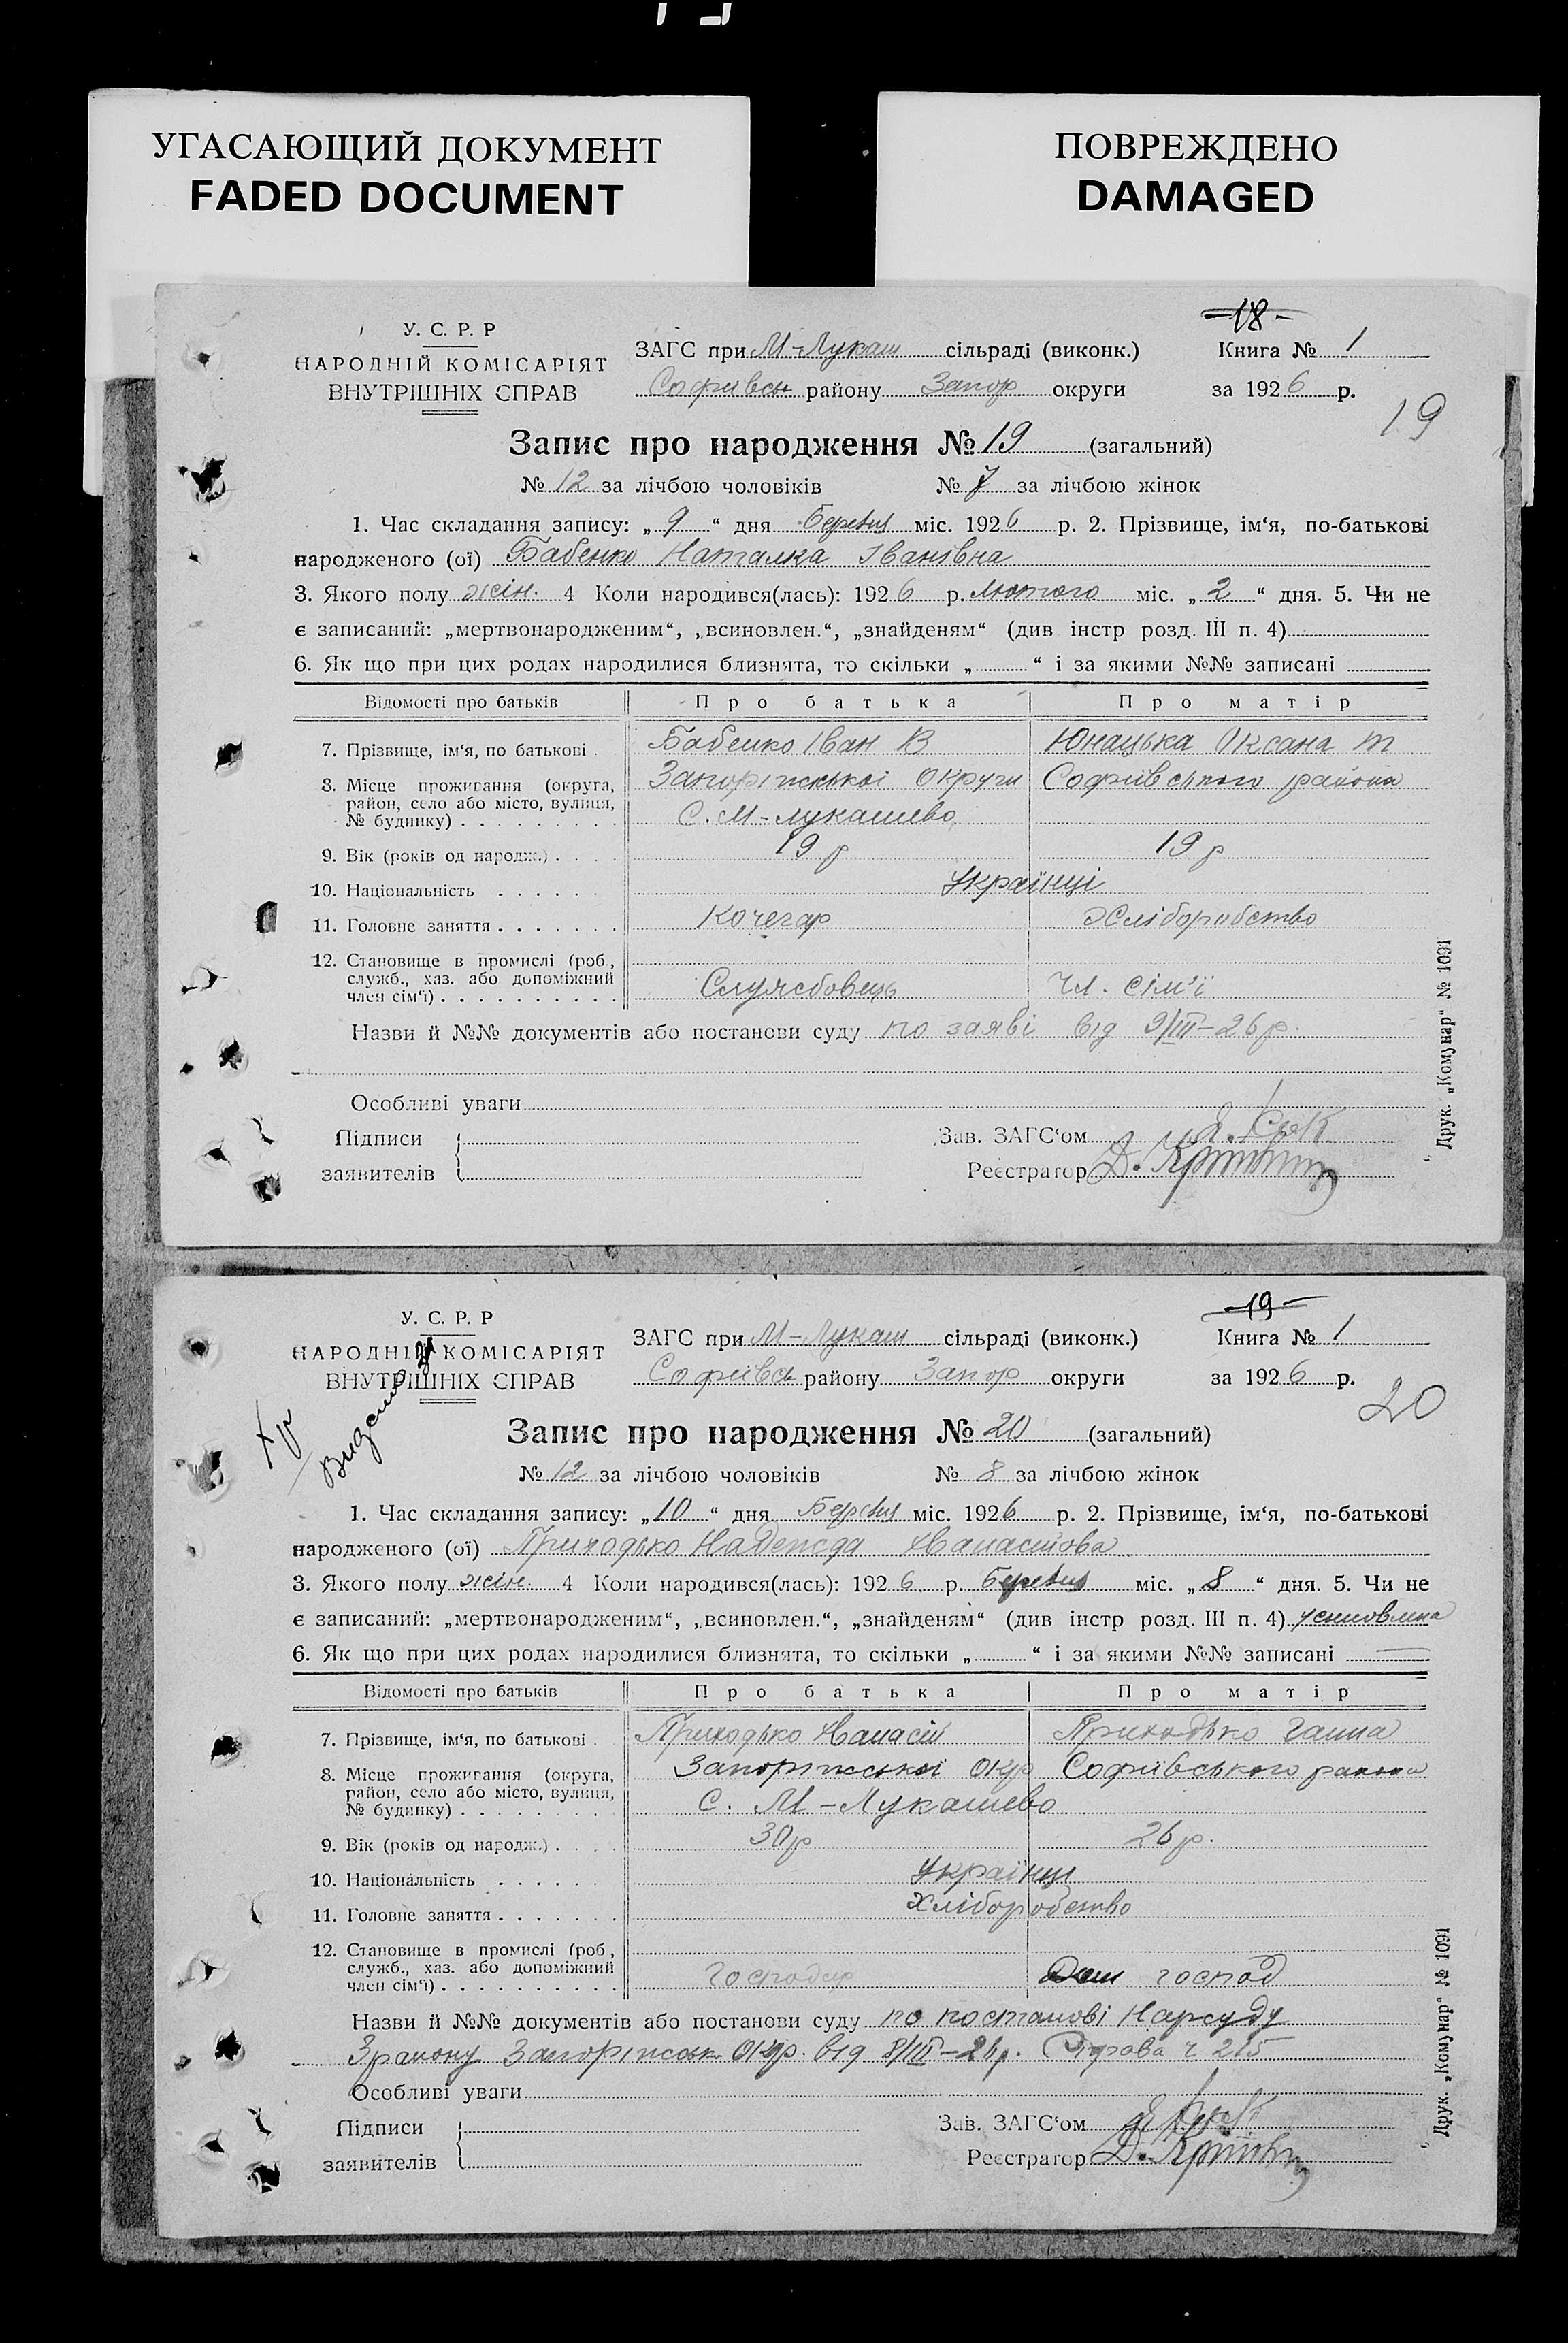 УГАСАЮЩИЙ ДОКУМЕНТ
FADED DOCUMENT
ПОВРЕЖДЕНО
DAMAGED
У. С. Р. Р
НАРОДНІЙ КОМІСАРІЯТ
ВНУТРІШНІХ СПРАВ
ЗАГС при М-Лукаш сільраді (виконк.)
Софиївськ району Запор округи
18
Книга № 1
за 1926 р.
19
Запис про народження № 19 (загальний)
№ 12 за лічбою чоловіків № 7 за лічбою жінок
1. Час складання запису: „9“ дня березня міс. 1926 р. 2. Прізвище, ім‘я, по-батькові
народженого (ої) Бабенко Наталка Іванівна
3. Якого полу жін. 4 Коли народився(лась): 1926 р. лютого міс. „2“ дня. 5. Чи не
є записаний: „мертвонародженим“, „всиновлен.“, „знайденям“ (див інстр розд. III п. 4)
6. Як що при цих родах народилися близнята, то скільки „ “ і за якими №№ записані
Відомості про батьків Про батька Про матір
7. Прізвище, ім‘я, по батькові Бабенко Іван В Юнацька Оксана Т
8. Місце прожигання (округа, Запоріжської округи Софиївського района
район, село або місто, вулиця,
№ будинку) С. М-лукашево
9. Вік (років од народж.) 19 р 19 р
10. Національність Українці
11. Головне заняття Кочегар Хліборобство
12. Становище в промислі (роб.,
служб., хаз. або допоміжний
член сім‘ї) Служсбовець Чл. сім'ї
Назви й №№ документів або постанови суду по заяві від 9/III-26 р.
Особливі уваги
Підписи
заявителів
Зав. ЗАГС‘ом
Реєстратор Д.
Друк. „Комунар“ № 1091
У. С. Р. Р
НАРОДНІЙ КОМІСАРІЯТ
ВНУТРІШНІХ СПРАВ
ЗАГС при М-Лукаш сільраді (виконк.)
Софиївсь району Запор округи
19
Книга № 1
за 1926 р.
20
Запис про народження № 20 (загальний)
№ 12 за лічбою чоловіків № 8 за лічбою жінок
1. Час складання запису: „10“ дня Березня міс. 1926 р. 2. Прізвище, ім‘я, по-батькові
народженого (ої) Приходько Надежда Хванасийова
3. Якого полу жін. 4 Коли народився(лась): 1926 р. березня міс. „8“ дня. 5. Чи не
є записаний: „мертвонародженим“, „всиновлен.“, „знайденям“ (див інстр розд. III п. 4) усиновлена
6. Як що при цих родах народилися близнята, то скільки „ “ і за якими №№ записані
Відомості про батьків Про батька Про матір
7. Прізвище, ім‘я, по батькові Приходько Хванасій Приходько Ганна
8. Місце прожигання (округа, Запоріжської окр Софиївського района
район, село або місто, вулиця,
№ будинку) с. М-Лукашево
9. Вік (років од народж.) 30 р 26 р.
10. Національність Українци
11. Головне заняття Хліборобство
12. Становище в промислі (роб.,
служб., хаз. або допоміжний
член сім‘ї) Господар Дом господ
Назви й №№ документів або постанови суду по постанові Нарсуду
3 району Запоріжськ Окр. від 8/III-26 р. Справа ч 215
Особливі уваги
Підписи
заявителів
Зав. ЗАГС‘ом
Реєстратор Д.
Друк. „Комунар“ № 1091